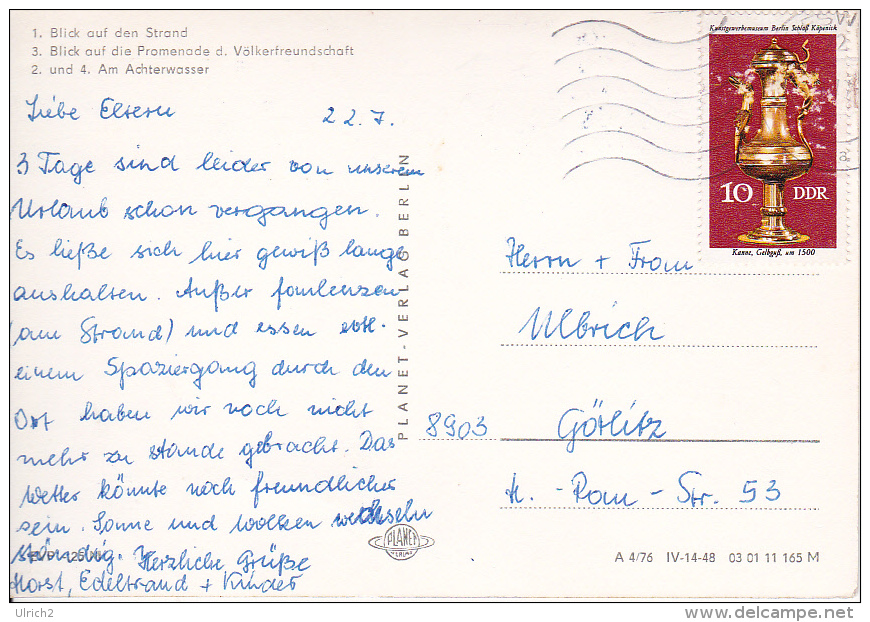 1. Blick auf den Strand
3. Blick auf die Promenade d. Völkerfreundschaft
2. und 4. Am Achterwasser
Liebe Eltern 22.7.
3 Tage sind leider von unserem
Urlaub schon vergangen.
Es ließe sich hier gewiß lange
aushalten. Außer faulenzen
(am Strand) und essen evtl.
einem Spaziergang durch den
Ort haben wir noch nicht
mehr zu stande gebracht. Das
Wetter könnte noch freundlicher
sein. Sonne und Wolken wechseln
ständig.
Herzliche Grüße
Horst, Edeltraud + Kinder
PLANET-VERLAG BERLIN
PLANET
VERLAG
Kunstgewerbemuseum Berlin Schloß Köpenick
10 DDR
Kanne, Gelbguß, um 1500
Herrn + Frau
Ulbrich
8903 Görlitz
Str. 53
A 4/76 IV-14-48 03 01 11 165 M
Ulrich2
delcampe.net